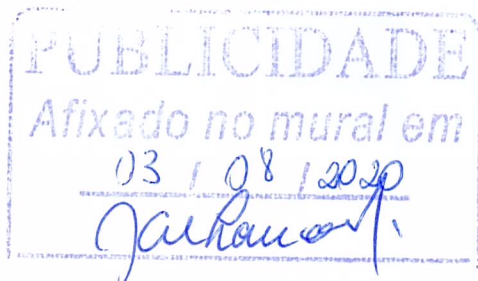 PUBLICIDADE
Afixado no mural em
03 / 08 / 2020